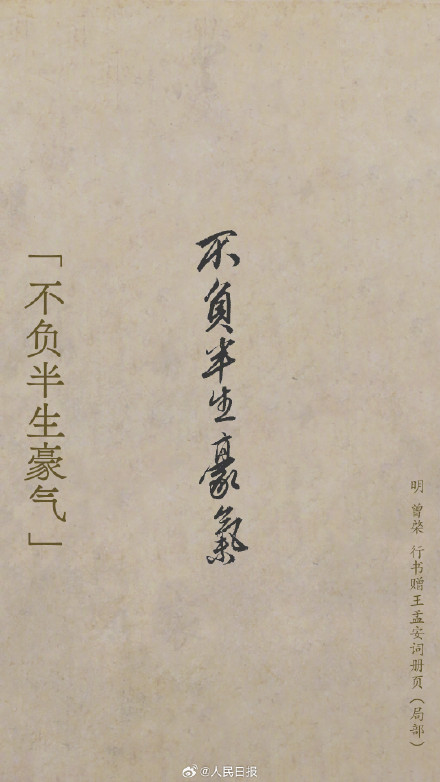 「不负半生豪气」
不負半生豪氣
明 曾棨 行书赠王孟安词册页（局部）
@人民日报